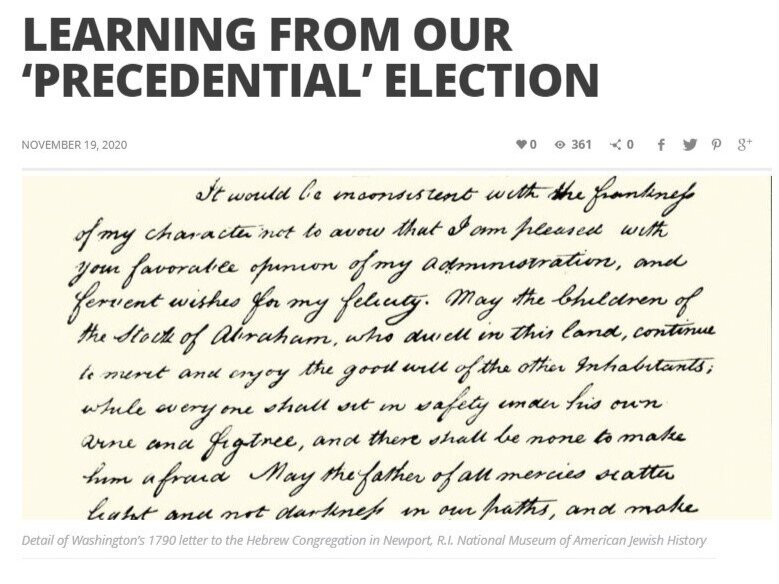 LEARNING FROM OUR
‘PRECEDENTIAL’ ELECTION
NOVEMBER 19, 2020
0 361 0 f g+
It would be inconsistent with the frankness
of my character not to avow that I am pleased with
your favorable opinion of my administration, and
fervent wishes for my felicity. May the Children of
the Stock of Abraham, who dwell in this land, continue
to merit and enjoy the good will of the other Inhabitants;
while every one shall sit in safety under his own
vine and figtree, and there shall be none to make
him afraid May the father of all mercies scatter
light and not darkness in our paths, and make
Detail of Washington’s 1790 letter to the Hebrew Congregation in Newport, R.I. National Museum of American Jewish History